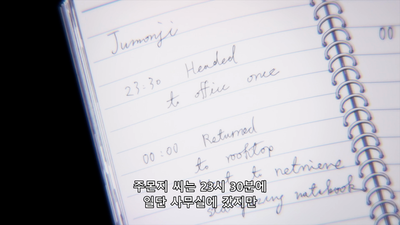 Jumonji
23:30 Headed
to office once
00:00 Returned
to rooftop
to retrieve
notebook
00
주몬지 씨는 23시 30분에
일단 사무실에 갔지만